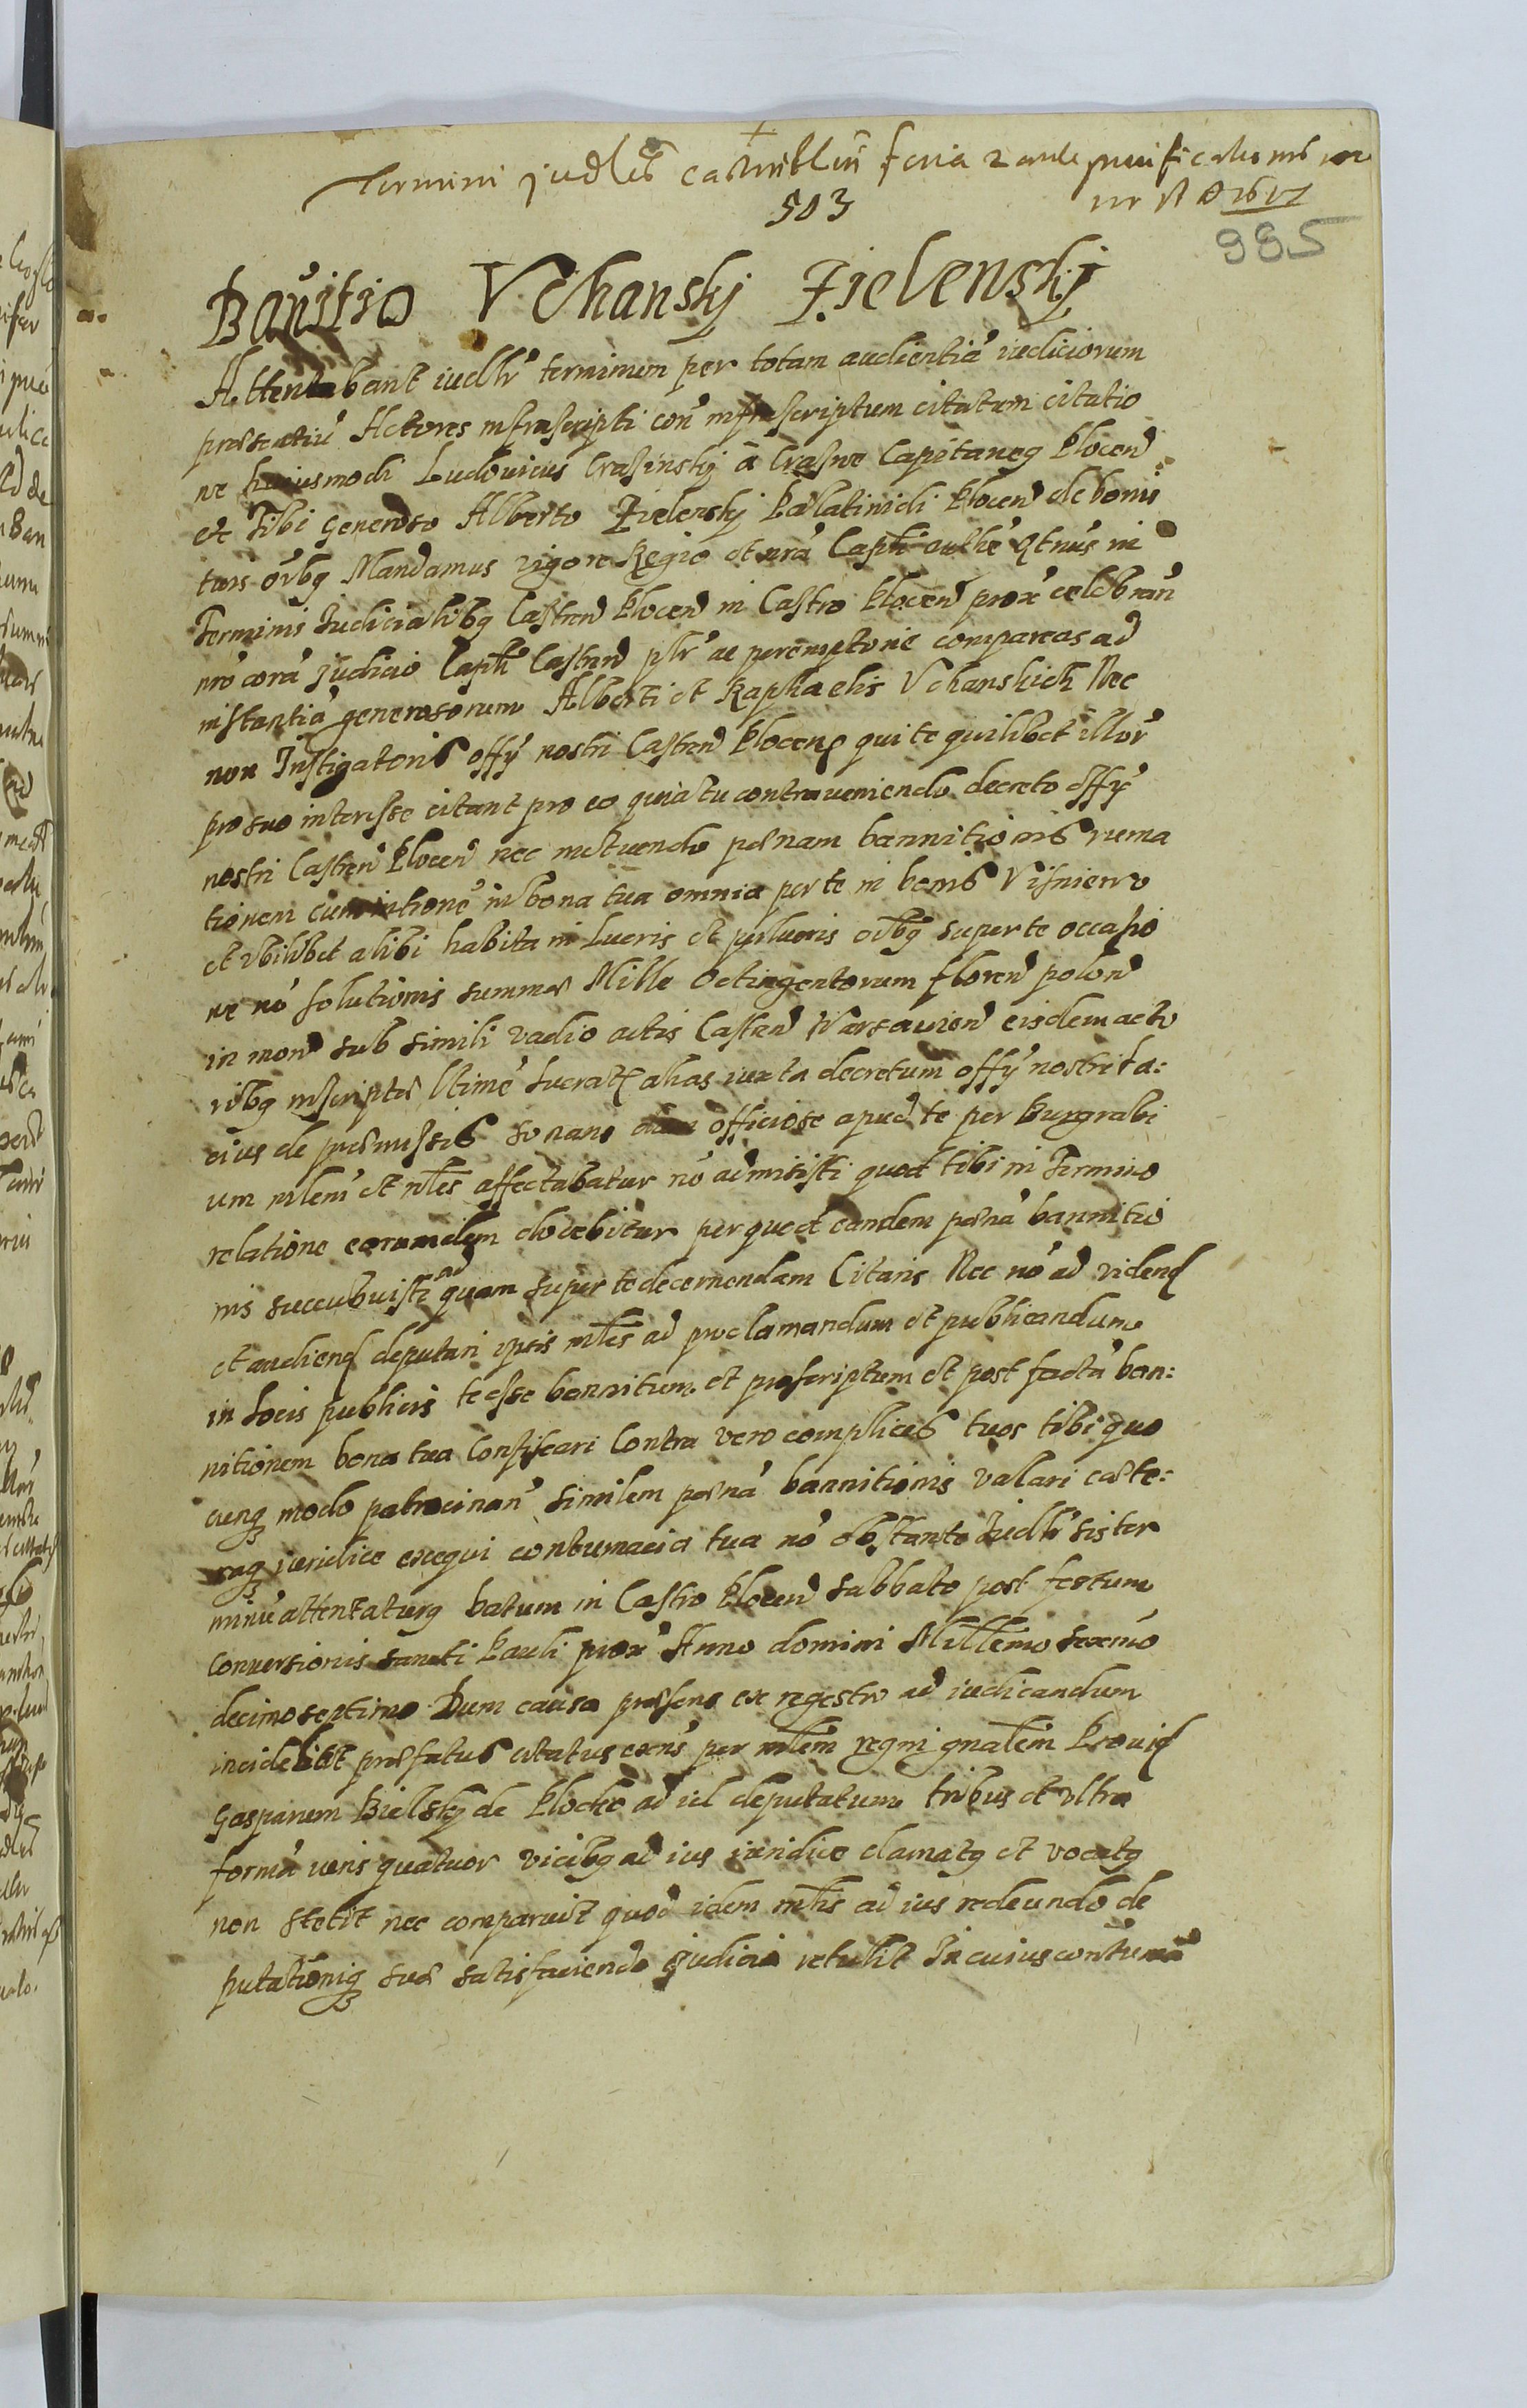 Termini judles castren feria 2 ante purificationis
503
985
Banitio Vchanskj Zielenskj
Attentabant iudlr terminum per totam audientiã iudiciorum
præsentiũ Actores infrascripti con infrascriptum citatum citatio
ne huiusmodi Ludovicus Crasinskj à Crasne Capitaneq Plocen
et Tibi generoso Alberto Zielenskj Palatinidi Plocen de bonis
tuis oĩbq Mandamus vigore Regio et nrã Capli authe qtnus in
Terminis Iudicialibq Castren Plocen in Castro Plocen prox celebran
nrõ corã judicio Capli Castren plr ac peremptorie compareas ad
instantiã generosorum Alberti et Raphaelis Vchanskich Nec
non Instigatoris offÿ nostri Castren Plocen qui te quilibet illor
pro suo interesse citant pro eo quia tu contraveniendo decreto offÿ
nostri Castren Plocen nec metuendo pœnam bannitionis ruma
tionem cum intione in bona tua omnia per te in bonis Visniewo
et vbilibet alibi habita in Lucris et perlucris oĩbq super te occasio
ne nõ solutionis summæ Mille Octingentorum floren polon
in mon sub simili vadio actis Castren Warsavien eisdem acto
ribq inscriptæ ltime lucrat alias iuxta decretum offÿ nostri la:
cius de præmissis sonans dum officiose apud te per Burgrabi
um mlem et nles affectabatur nõ admisisti quod tibi in Termino
relatione eorumdem docebitur per quod eandem pœnã bannitio
nis succubuisti ad quam super te decernendam Citaris Nec nõ ad viden
et audien deputari ipsis mles ad proclamandum et publicandum
in Locis publicis te esse bannitum et proscriptum et post factã ban:
nitionem bona tua Confiscari Contra vero complices tuos tibi quo
cunq modo patrocinan similem pœnã bannitionis valari cæte:
raq iuridice exequi contumacia tua nõ obstante Iudlr sis ter
minũ attentaturq Datum in Castro Plocen Sabbato post festum
Conversionis Sancti Pauli prox Anno domini Millemo sexmo
decimo septimo Dum causa præsens ex regestro ad iudicandum
incidebat præfatus citatus per mlem regni gnalem Provid
Gasparum Bielskj de Plocko ad id deputatum tribus et vltra
formã iuris quatuor vicibq ad ius iuridice clamatq et vocatq
non stetit nec comparuit quod idem mlis ad ius redeundo de
putationiq suæ satisfaciendo judicio retulit In cuius contuma